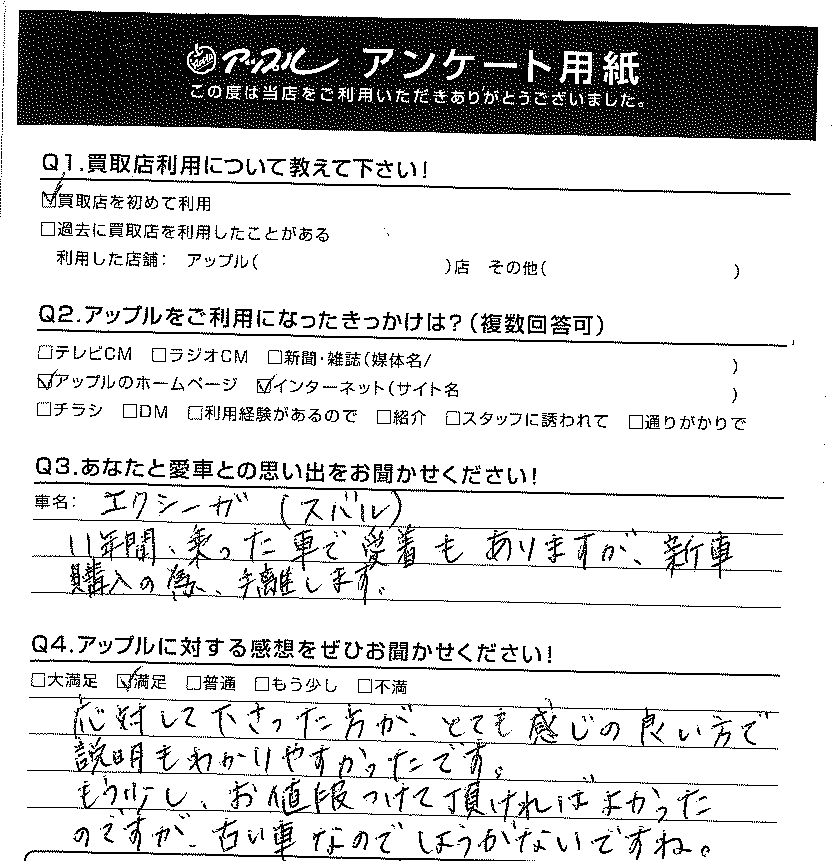 アップル アンケート用紙
この度は当店をご利用いただきありがとうございました。
Q1.買取店利用について教えて下さい!
☑買取店を初めて利用
□過去に買取店を利用したことがある
利用した店舗: アップル( )店 その他( )
Q2.アップルをご利用になったきっかけは?(複数回答可)
□テレビCM □ラジオCM □新聞・雑誌(媒体名/ )
☑アップルのホームページ ☑インターネット(サイト名 )
□チラシ □DM □利用経験があるので □紹介 □スタッフに誘われて □通りがかりで
Q3.あなたと愛車との思い出をお聞かせください!
車名: エクシーガ (スバル)
11年間、乗った車で愛着もありますが、新車
購入の為、手離します。
Q4.アップルに対する感想をぜひお聞かせください!
□大満足 ☑満足 □普通 □もう少し □不満
応対して下さった方が、とても感じの良い方で
説明もわかりやすかったです。
もう少し、お値段つけて頂ければよかった
のですが、古い車なのでしょうがないですね。